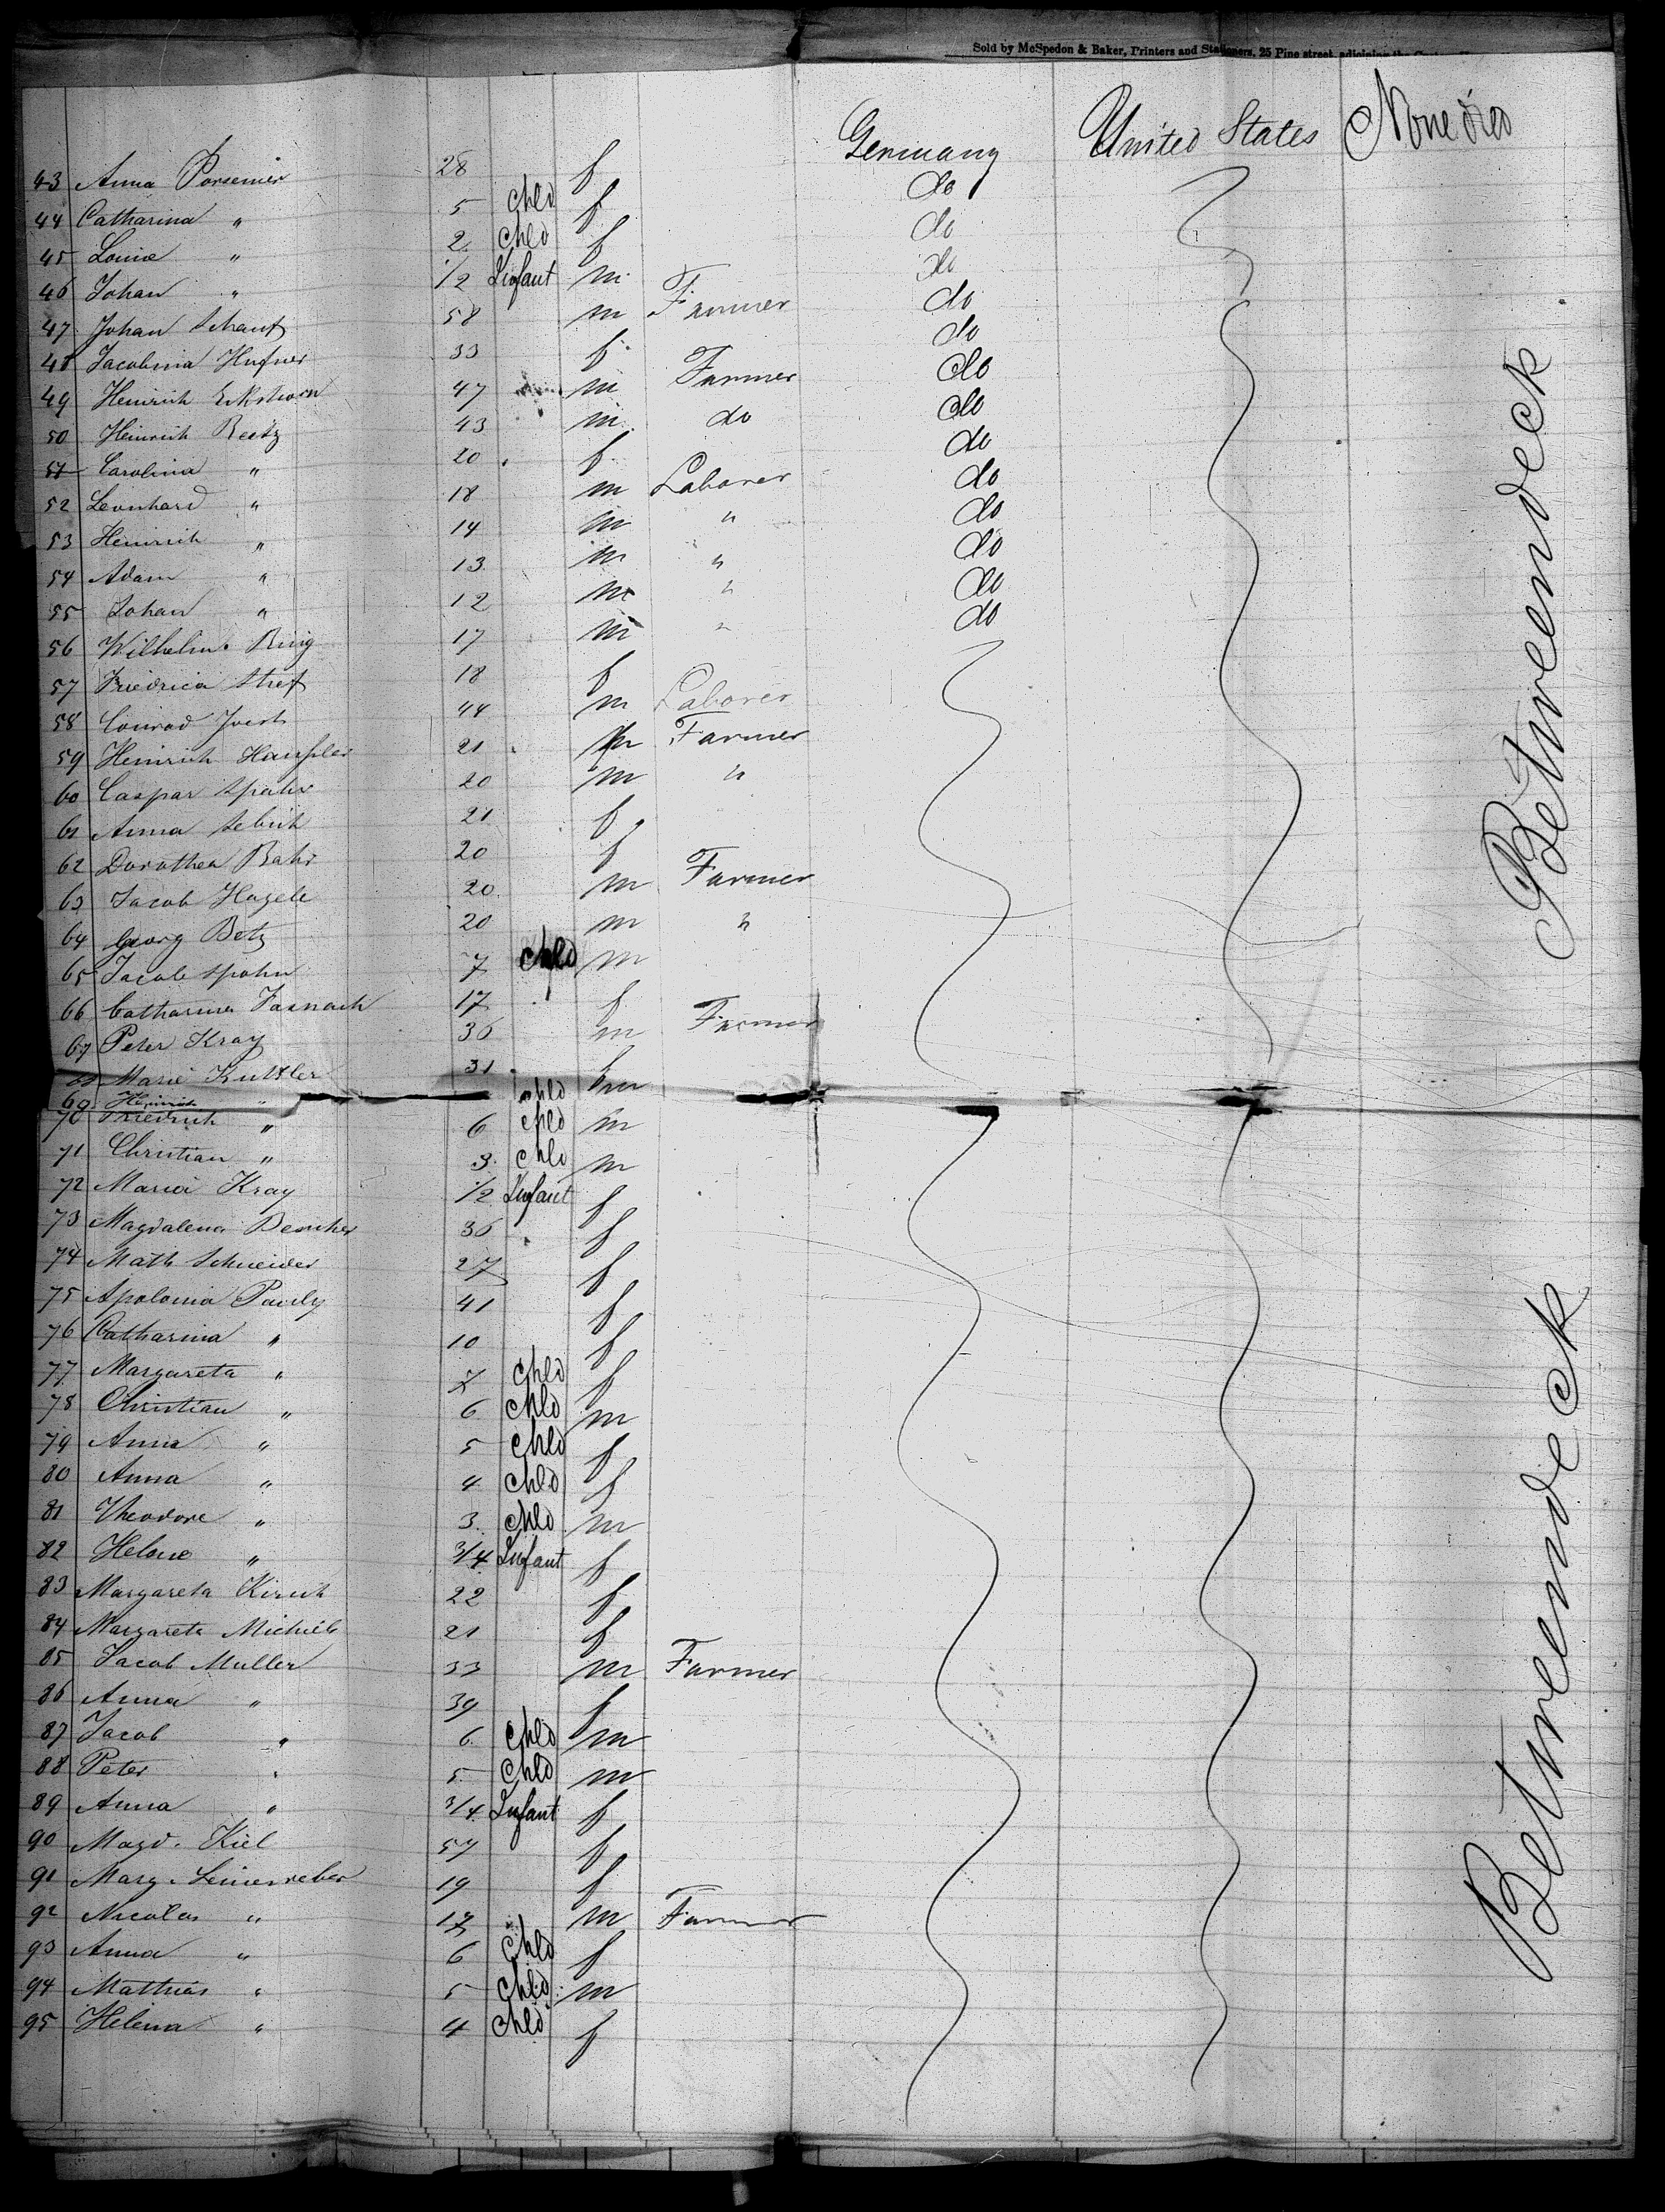 Sold by McSpedon & Baker, Printers and Stationers, 25 Pine street, adjoining the
Germany United States None died
43 Anna Porsenier 28 f do
44 Catharina " 5 Chld f do
45 Louise " 2 Chld f do
46 Johan " 1/2 Infant m
47 Johan Schantz 58 m Farmer do
48 Jacobina Hufner 33 f do
49 Heinrich Eckhorn 47 m Farmer do
50 Heinrich Reetz 43 m do do
51 Carolina " 20 f do
52 Leonhard " 18 m Laborer do
53 Heinrich " 14 m " do
54 Adam " 13 m " do
55 Johan " 12 m " do
56 Wilhelm Ring 17 m " do
57 Friedrica Stref 18 f
58 Conrad Joest 44 m Laborer
59 Heinrich 21 m Farmer
60 Caspar Spahr 20 m "
61 Anna 21 f
62 Dorothea Bahr 20 f
63 Jacob Hagele 20 m Farmer
64 Georg Betz 20 m "
65 Jacob Spohn 7 Chld m
66 Catharina Fasnach 17 f
67 Peter Kray 36 m Farmer
68 Marie Kuttler 31 f
69 Heinrich " Chld m
70 Friedrich " 6 Chld m
71 Christian " 3 Chld m
72 Maria Kray 1/2 Infant f
73 Magdalena 36 f
74 Math Schneider 27 f
75 Apolonia Pauly 41 f
76 Catharina " 10 f
77 Margareta " 7 Chld f
78 Christian " 6 Chld m
79 Anna " 5 Chld f
80 Anna " 4 Chld f
81 Theodore " 3 Chld m
82 Helene " 3/4 Infant f
83 Margareta Kirch 22 f
84 Margareta Michiels 21 f
85 Jacob Muller 33 m Farmer
86 Anna " 39 f
87 Jacob " 6 Chld m
88 Peter " 5 Chld m
89 Anna " 3/4 Infant f
90 Magd. Kiel 57 f
91 Marg. Leinenweber 19 f
92 Nicolas " 17 m Farmer
93 Anna " 6 Chld f
94 Mathias " 5 Chld m
95 Helena " 4 Chld f
Betweendeck
Betweendeck